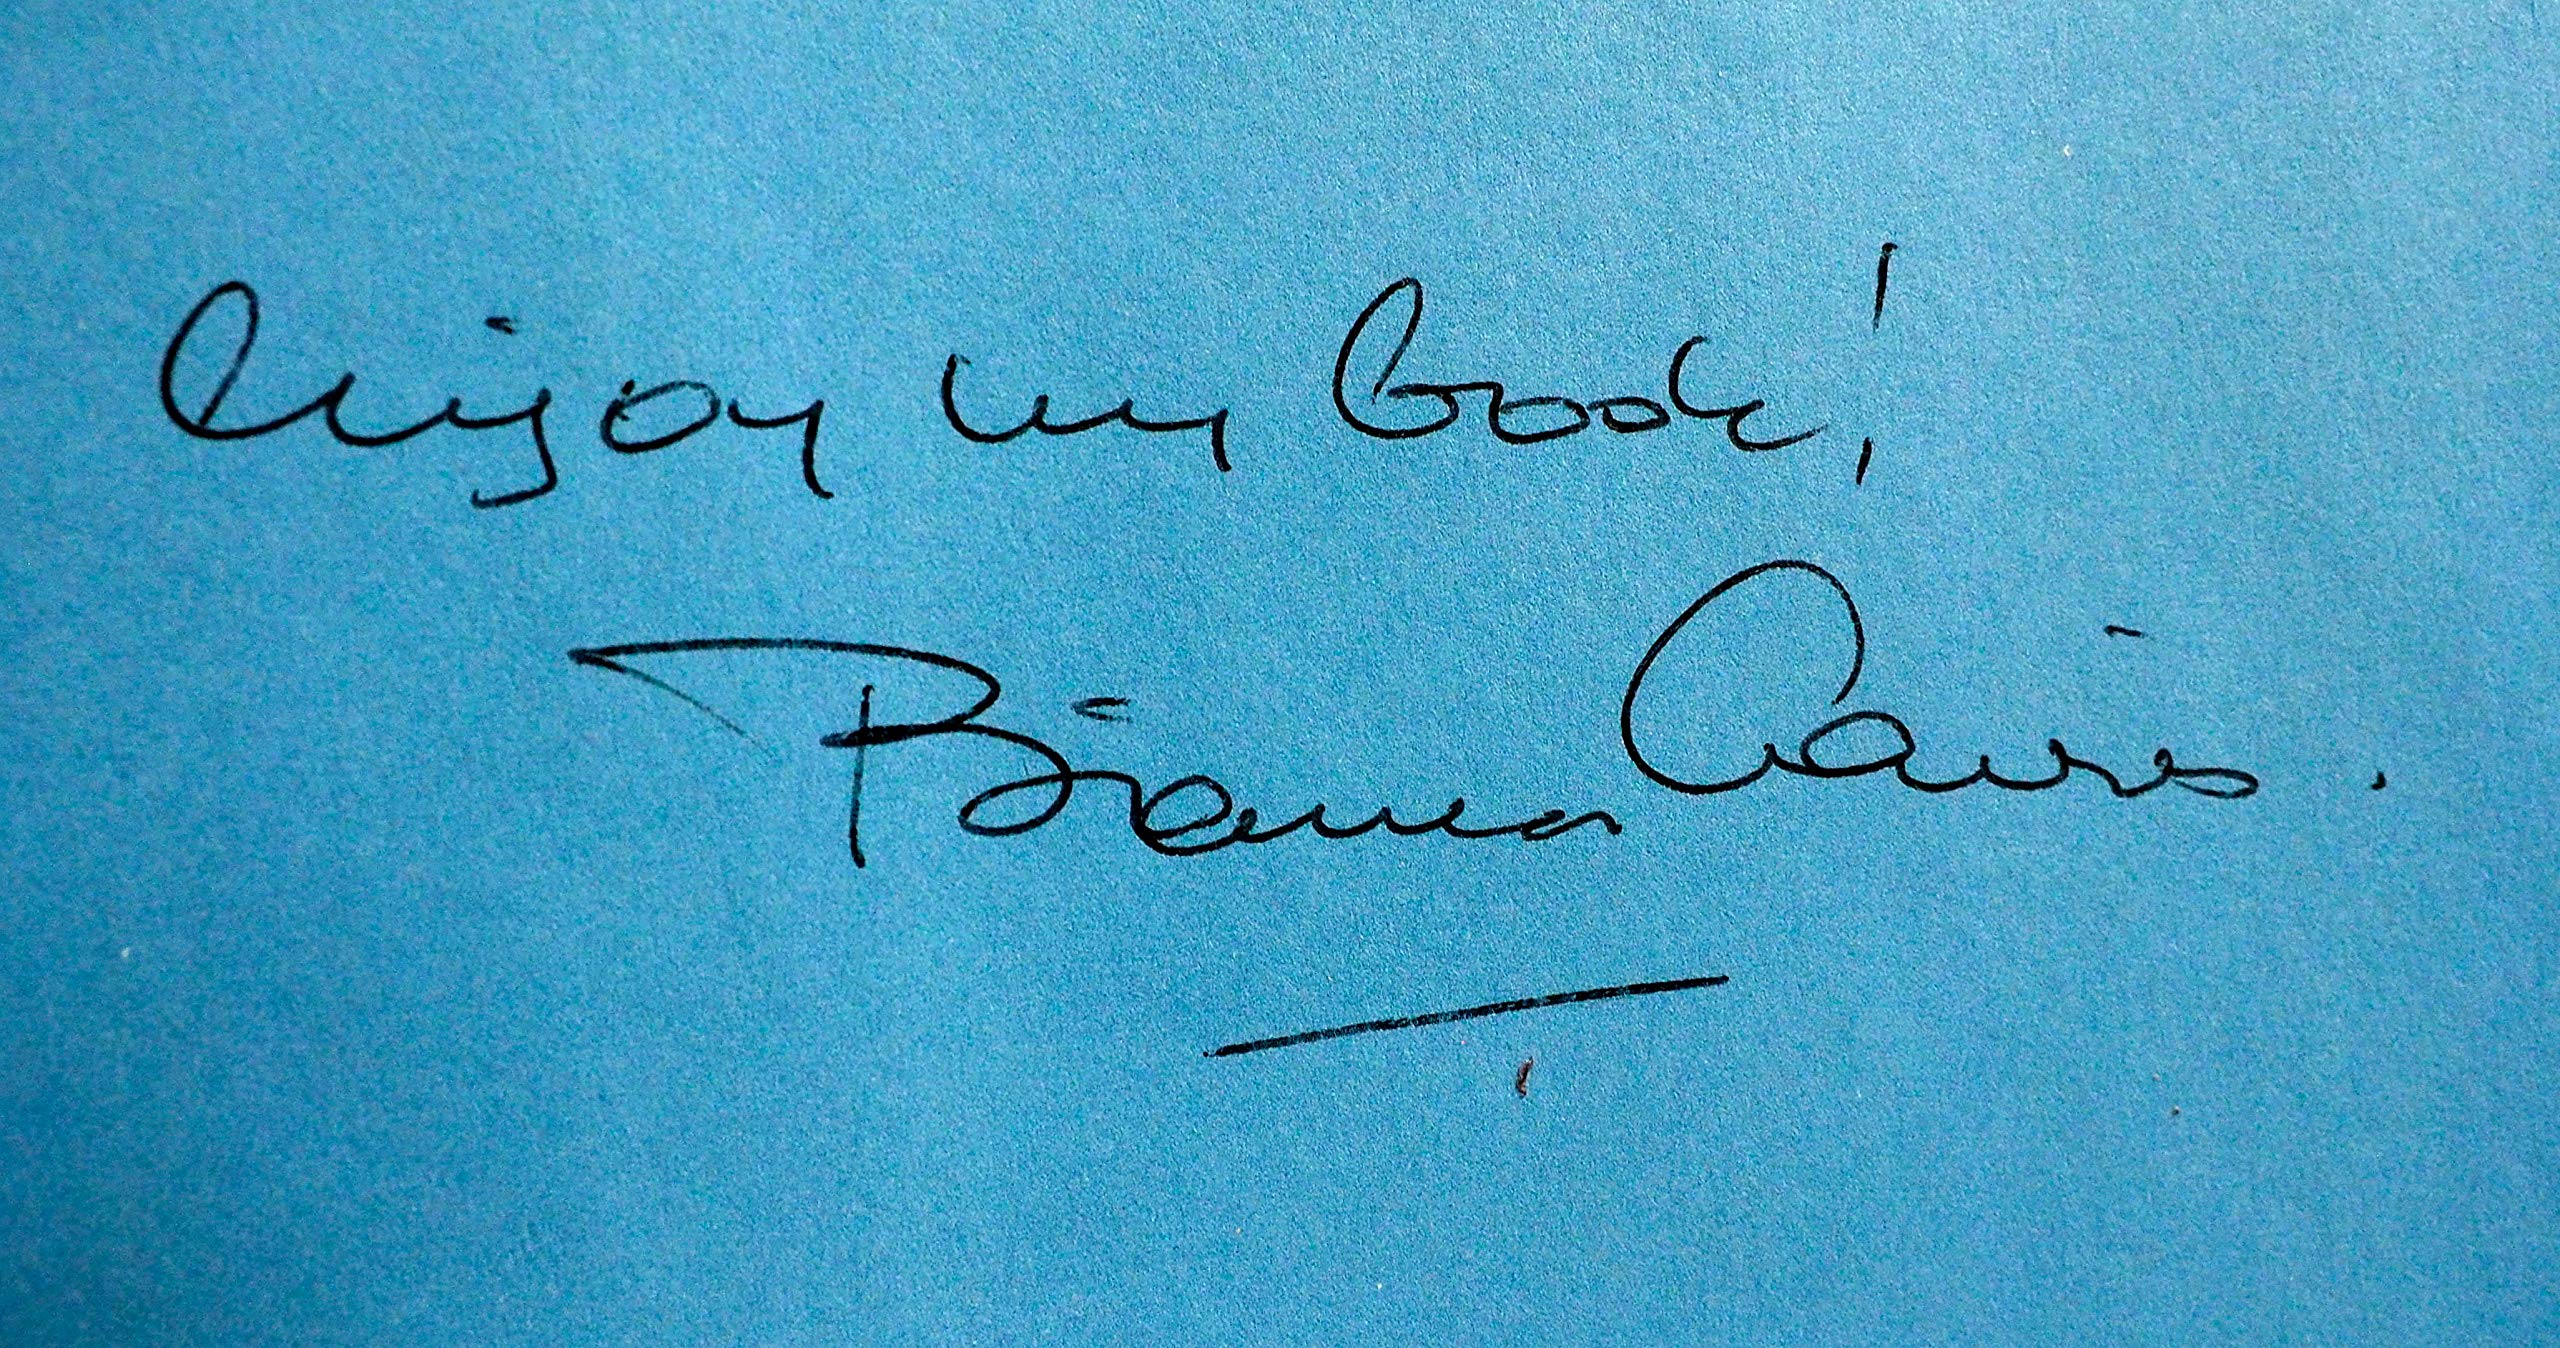 enjoy my book!
Bianca